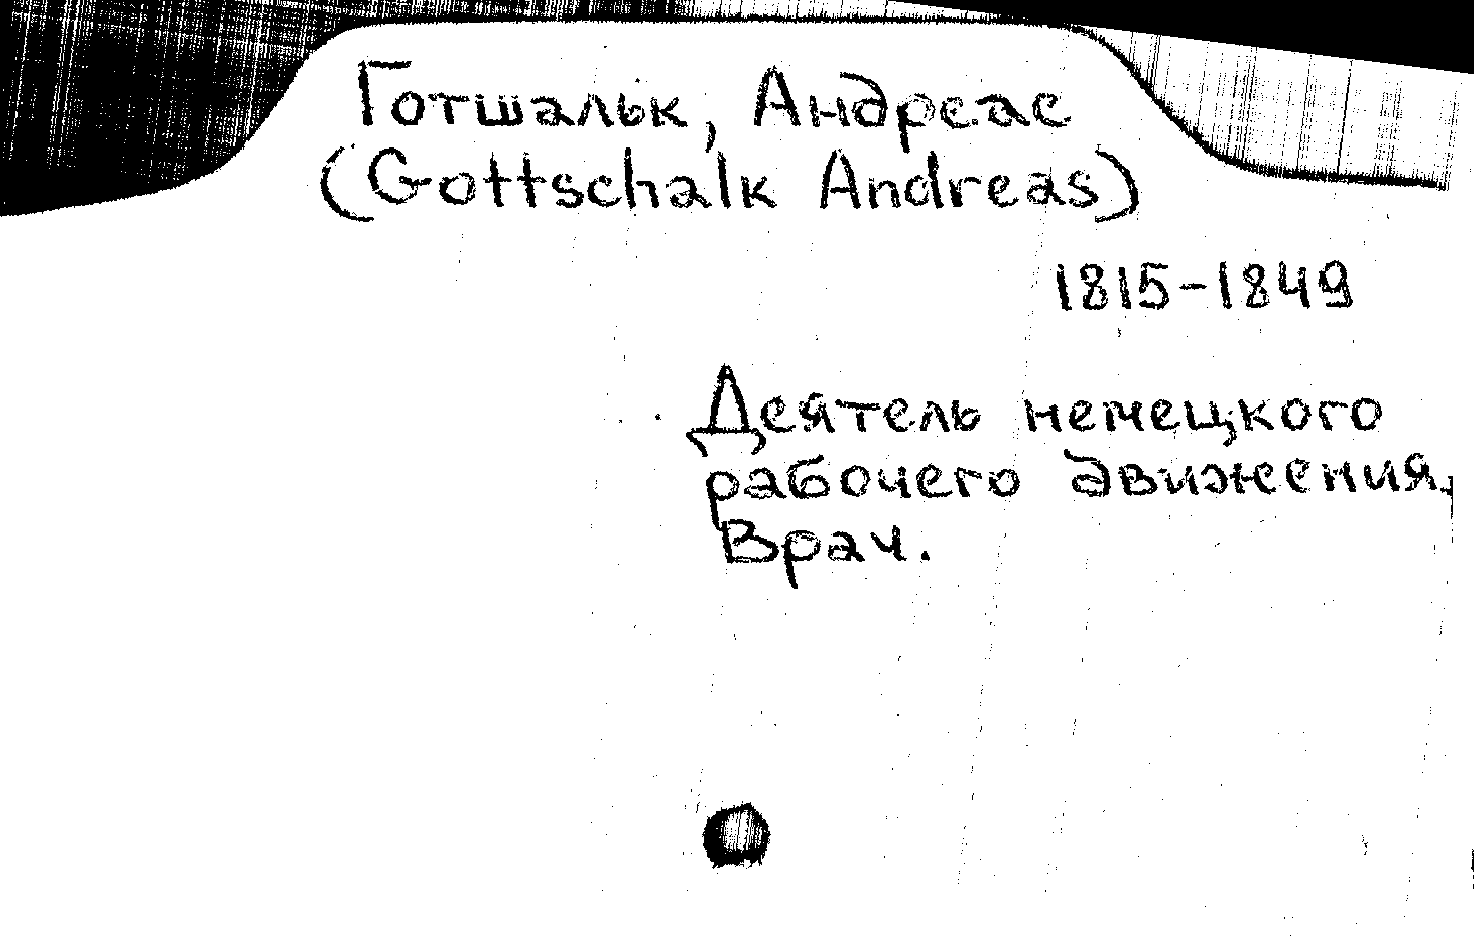 Готшальк, Андреас
(Gottschalk Andreas)
1815-1849
Деятель немецкого
рабочего движения,
Врач.